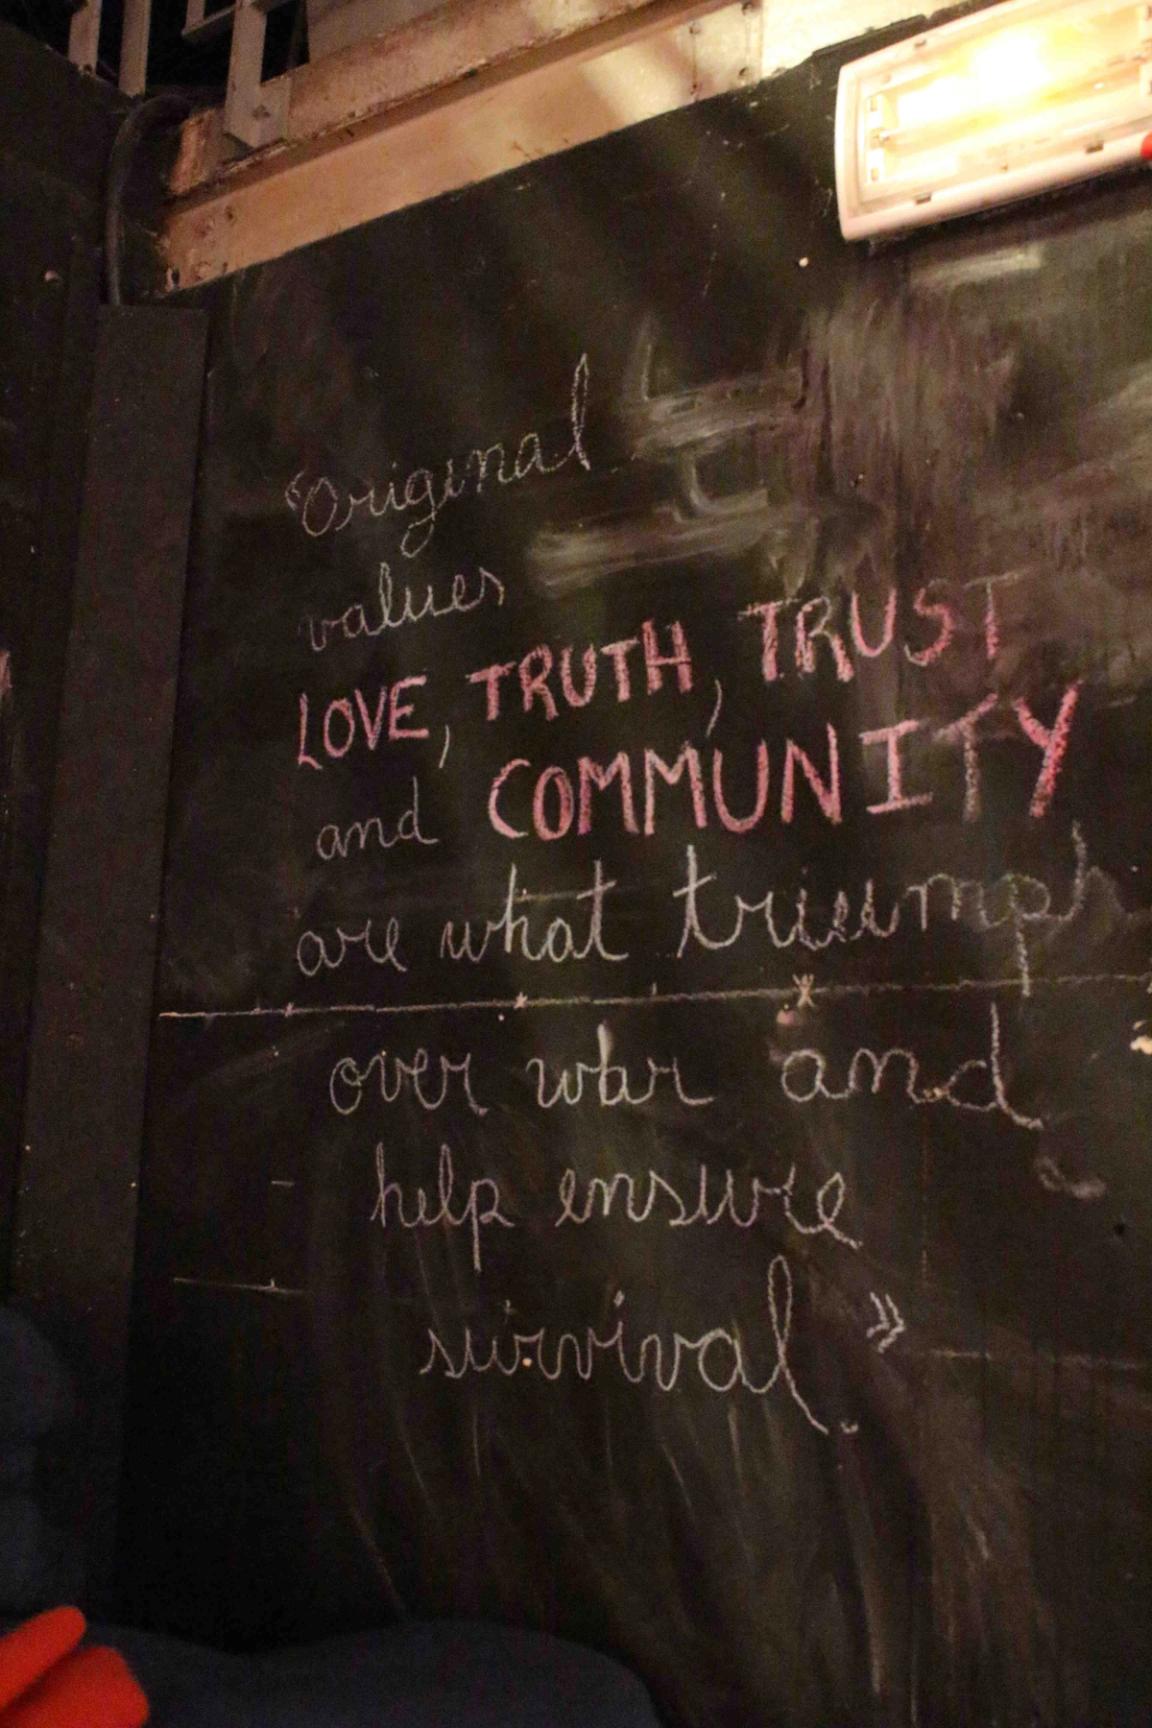 "Original
values
LOVE, TRUTH, TRUST
and COMMUNITY
are what triumph
over war and
help ensure
survival"